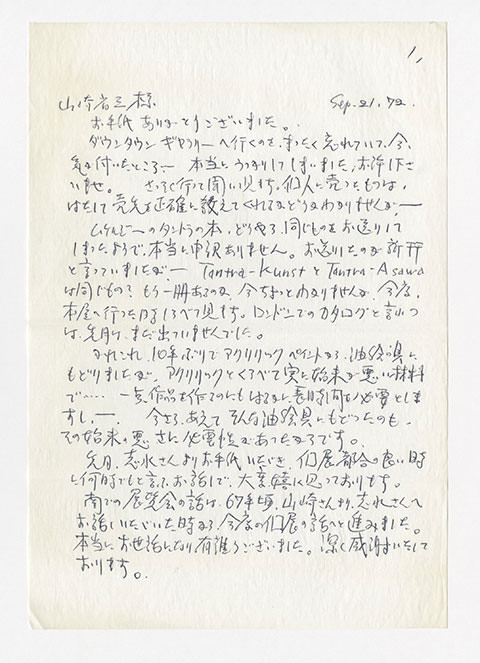 1,
山崎省三様 Sep. 21, 72.
お手紙ありがとうございました。
ダウンタウンギャラリーへ行くのを、まったく忘れていて、今、
気が付いたところ— 本当にうっかりしてしまいました。お許し下さ
いませ。 さっそく行って聞いて見ます。個人に売ったものは、
はたして売先を正確に教えてくれるかどうかわかりませんが、—
ムケルジーのタントラの本、どうやら、同じものをお送りして
しまったようで、本当に申訳ありません。お送りしたのが新刊
と言っていましたが— Tantra-KunstとTantra-Asawa
は同じもの? もう一冊あるのか、今ちょっとわかりませんが、今度、
本屋へ行った時しらべて見ます。ロンドンでのカタログと言うの
は、先月は、まだ出ていませんでした。
かれこれ、10年ぶりでアクリリックペイントから、油絵具に
もどりましたが、アクリリックとくらべて実に始末が悪い材料
で‥‥ 一点作品を作るのにもはるかに長時間を必要としま
すし、—. 今さら、あえてそんな油絵具にもどったのも、
その始末の悪さに必要性があったからです。
先月、志水さんよりお手紙いただき、個展都合の良い時
に何時でもと言うお話しで、大変嬉しく思っております。
南での展覧会の話は、67年頃、山崎さんより、志水さんへ
お話しいただいた時から、今度の個展の話へと進みました。
本当にお世話になり有難うございました。深く感謝いたして
おります。